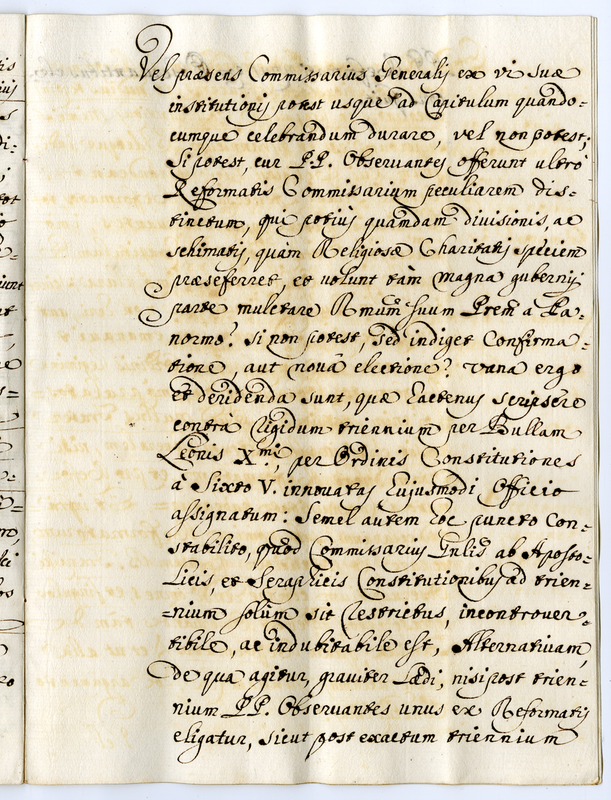 Vel præsens Commissarius Generalis ex vi suæ
institutionis potest usque ad Capitulum quando-
cumque celebrandum durare, vel non potest;
Si potest, cur P.P. Observantes offerunt ultrò
Reformatis Commissarium peculiarem dis-
tinctum, qui potius quamdam divisionis, ac
schimatis, quàm Religiosæ Charitatis speciem
præseferret, et volunt tàm magna gubernij
parte muletare Rmum suum Prem a Pa-
normo? si non potest, sed indiget Confirma-
tione, aut novâ electione? vana ergo
et deridenda sunt, quæ hactenus scripsere
contrà rigidum triennium per Bullam
Leonis X.mi, per Ordinis Constitutiones
à Sixto V. innovatas hujusmodi Officio
assignatum: Semel autem hoc puncto Con-
stabilito, quòd Commissarius Gnlis ab Aposto-
licis, et Seraphicis Constitutionibus ad trien-
=nium solùm sit restrictus, incontrover-
tibile, ac indubitabile est, Alternativam,
de qua agitur, graviter Lædi, nisi post trien-
nium P.P. Observantes unus ex Reformatis
eligatur, sicut post exactum triennium